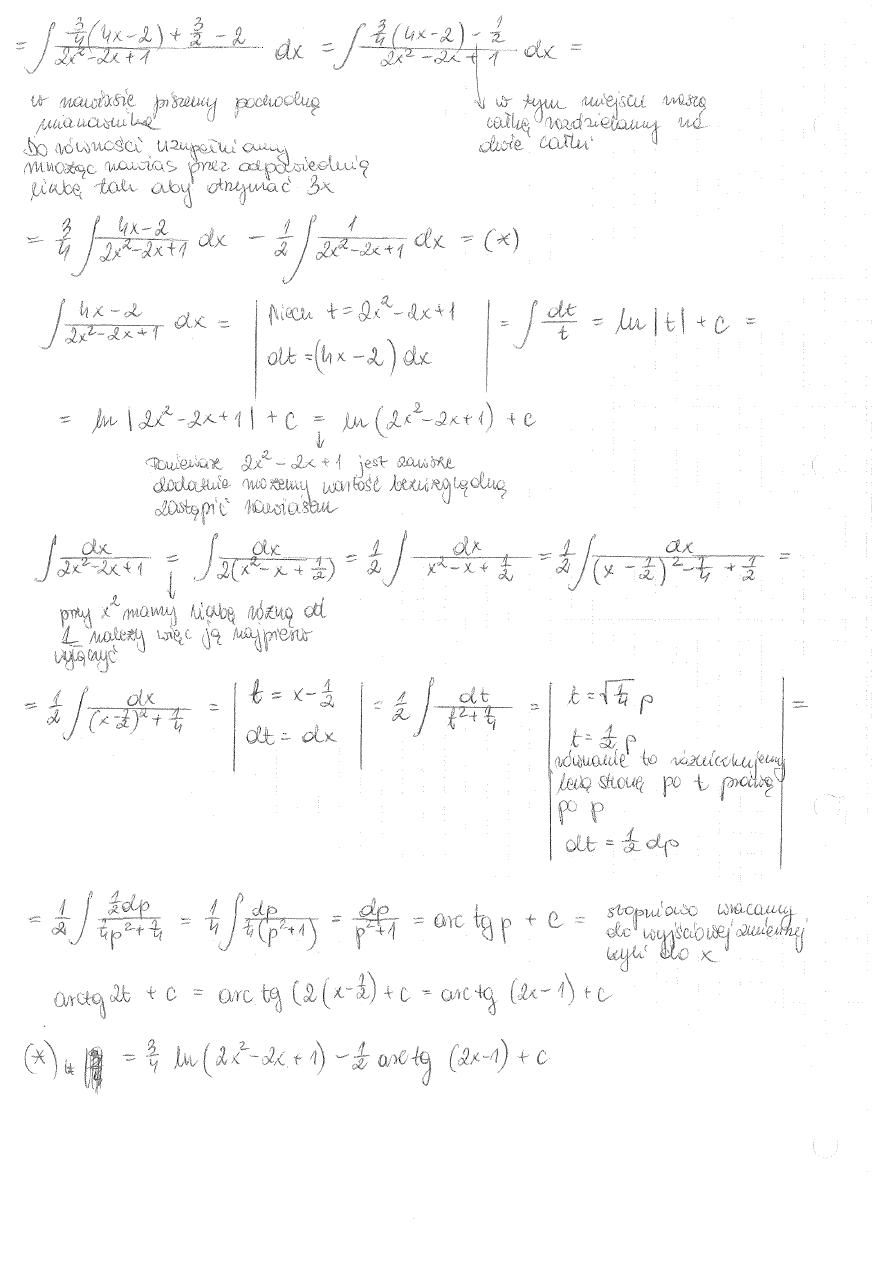 = ∫ (3/4(4x-2) + 3/2 - 2)/(2x²-2x+1) dx = ∫ (3/4(4x-2) - 1/2)/(2x²-2x+1) dx =
w nawiasie piszemy pochodną
mianownika
Do równości uzupełniamy
mnożąc nawias przez odpowiednią
liczbę tak aby otrzymać 3x
w tym miejscu naszą
całkę rozdzielamy na
dwie całki
= 3/4 ∫ (4x-2)/(2x²-2x+1) dx - 1/2 ∫ 1/(2x²-2x+1) dx = (*)
∫ (4x-2)/(2x²-2x+1) dx = | niech t = 2x²-2x+1 | = ∫ dt/t = ln|t| + c =
dt = (4x-2) dx
= ln|2x²-2x+1| + c = ln(2x²-2x+1) + c
↓
Ponieważ 2x²-2x+1 jest zawsze
dodatnie możemy wartość bezwzględną
zastąpić nawiasem
∫ dx/(2x²-2x+1) = ∫ dx/(2(x²-x+1/2)) = 1/2 ∫ dx/(x²-x+1/2) = 1/2 ∫ dx/((x-1/2)²-1/4+1/2) =
↓
przy x² mamy liczbę różną od
1 należy więc ją najpierw
wyłączyć
= 1/2 ∫ dx/((x-1/2)²+1/4) = | t = x-1/2 | = 1/2 ∫ dt/(t²+1/4) = | t = √(1/4) p | =
dt = dx
t = 1/2 p
równanie to różniczkujemy
lewą stronę po t prawą
po p
dt = 1/2 dp
= 1/2 ∫ (1/2 dp)/(1/4p²+1/4) = 1/4 ∫ dp/(1/4(p²+1)) = dp/(p²+1) = arc tg p + c =
stopniowo wracamy
do wyjściowej zmiennej
czyli do x
arctg 2t + c = arc tg (2(x-1/2) + c = arctg (2x-1) + c
(*) = 3/4 ln(2x²-2x+1) - 1/2 arctg (2x-1) + c